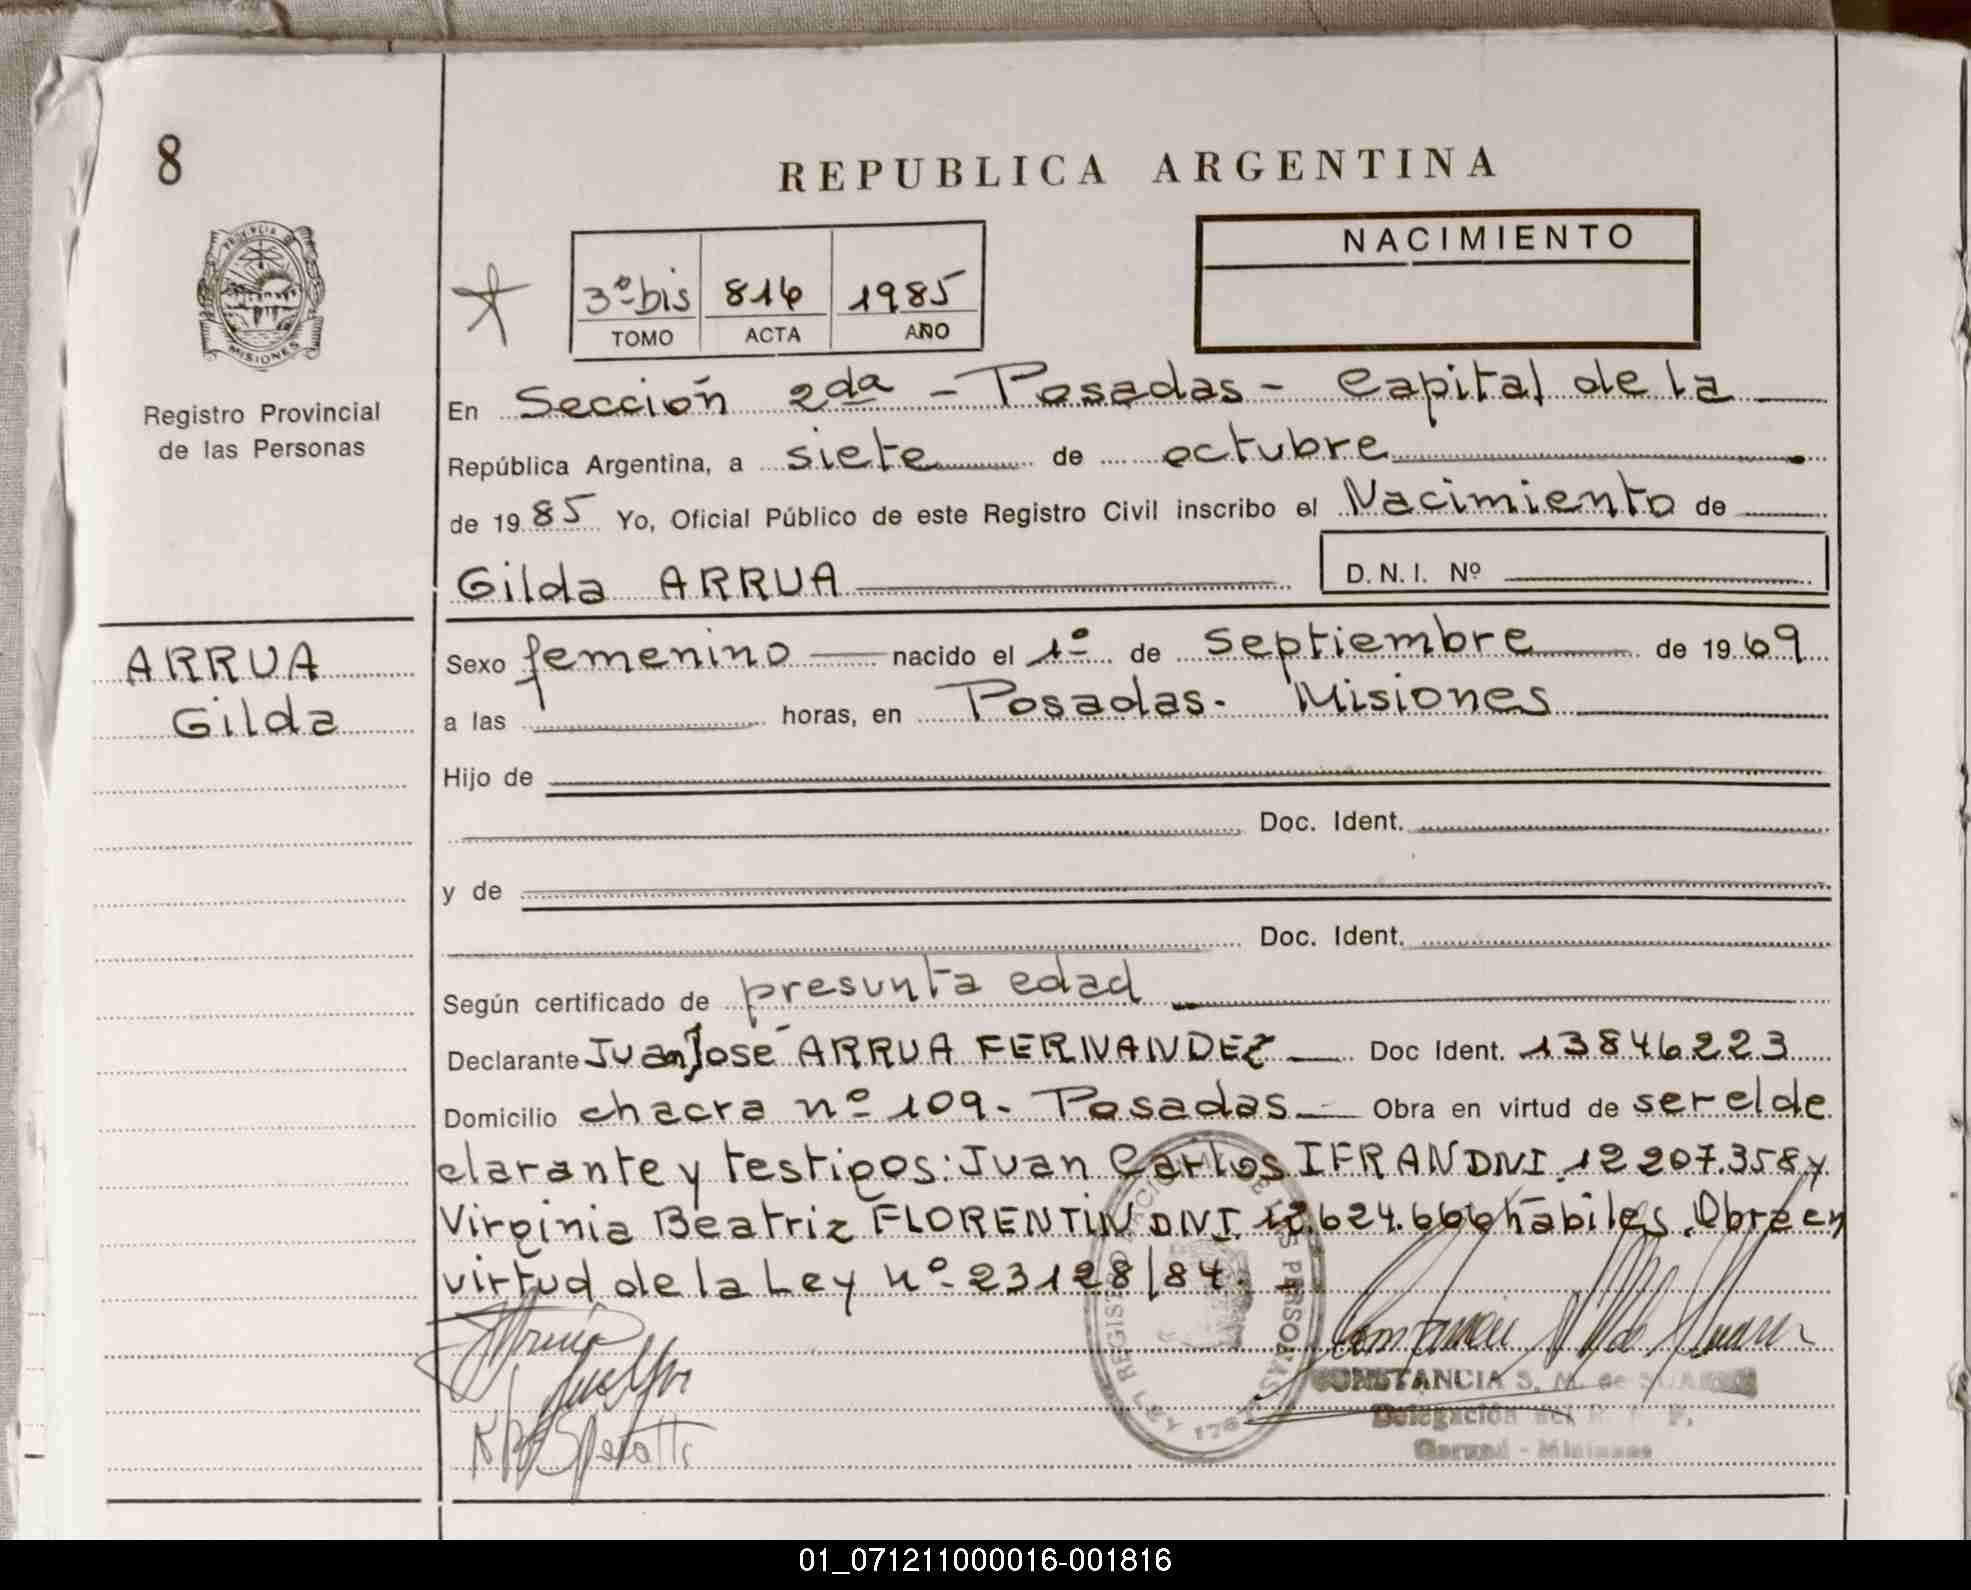 8
REPUBLICA ARGENTINA
PROVINCIA DE
MISIONES
Registro Provincial
de las Personas
3º bis 816 1985
TOMO ACTA AÑO
NACIMIENTO
En Sección 2da - Posadas - Capital de la
República Argentina, a siete de octubre
de 1985 Yo, Oficial Público de este Registro Civil inscribo el Nacimiento de
Gilda ARRUA D.N.I. Nº
ARRUA
Gilda
Sexo femenino nacido el 1º de septiembre de 1969
a las horas, en Posadas. Misiones
Hijo de
Doc. Ident.
y de
Doc. Ident.
Según certificado de presunta edad
Declarante Juan José ARRUA FERNANDEZ Doc Ident. 13846223
Domicilio chacra nº 109. Posadas Obra en virtud de ser el de
clarante y testigos: Juan Carlos IFRAN DNI. 12 207.358 y
Virginia Beatriz FLORENTIN DNI. 12.624.666 hábiles. Obra en
virtud de la Ley nº 23128/84.
CONSTANCIA S. M. de
Delegación del R. P. P.
Misiones
01_071211000016-001816